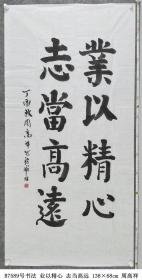 業以精心
志當高遠
丁酉秋周高祥
87589号书法 业以精心 志当高远 138×68cm 周高祥